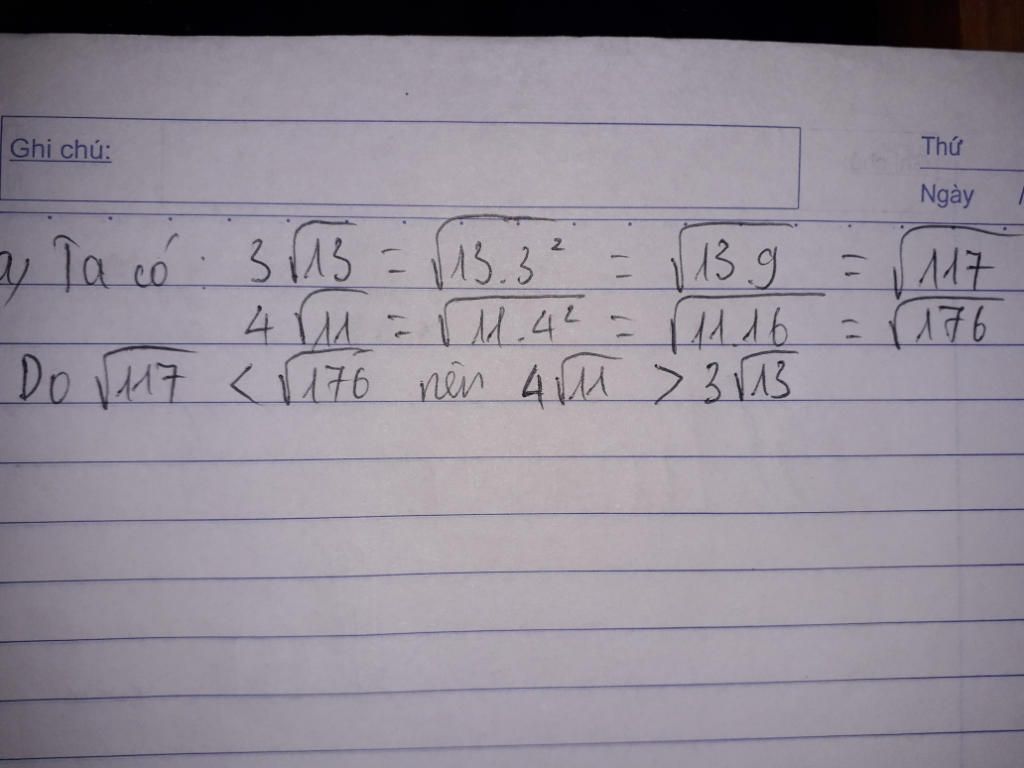 Ghi chú:
Thứ
Ngày /
a) Ta có: 3√13 = √13.3² = √13.9 = √117
4√11 = √11.4² = √11.16 = √176
Do √117 < √176 nên 4√11 > 3√13